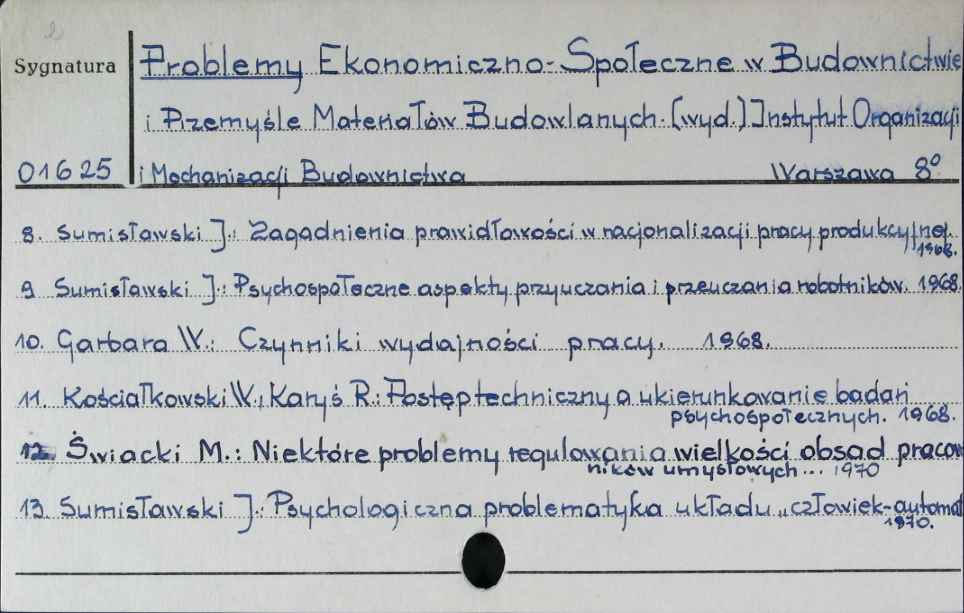 Sygnatura
Problemy Ekonomiczno-Społeczne w Budownictwie
i Przemyśle Materiałów Budowlanych. [wyd.] Instytut Organizacji
01625
i Mechanizacji Budownictwa Warszawa 8°
8. Sumisławski J.: Zagadnienia prawidłowości w racjonalizacji pracy produkcyjnej.
1968.
9 Sumisławski J.: Psychospołeczne aspekty przyuczania i przeuczania robotników. 1968.
10. Garbara W.: Czynniki wydajności pracy. 1968.
11. Kościałkowski W., Karyś R.: Postęp techniczny a ukierunkowanie badań
psychospołecznych. 1968.
12. Świacki M.: Niektóre problemy regulowania wielkości obsad pracow
ników umysłowych... 1970
13. Sumisławski J.: Psychologiczna problematyka układu „człowiek-automat
1970.